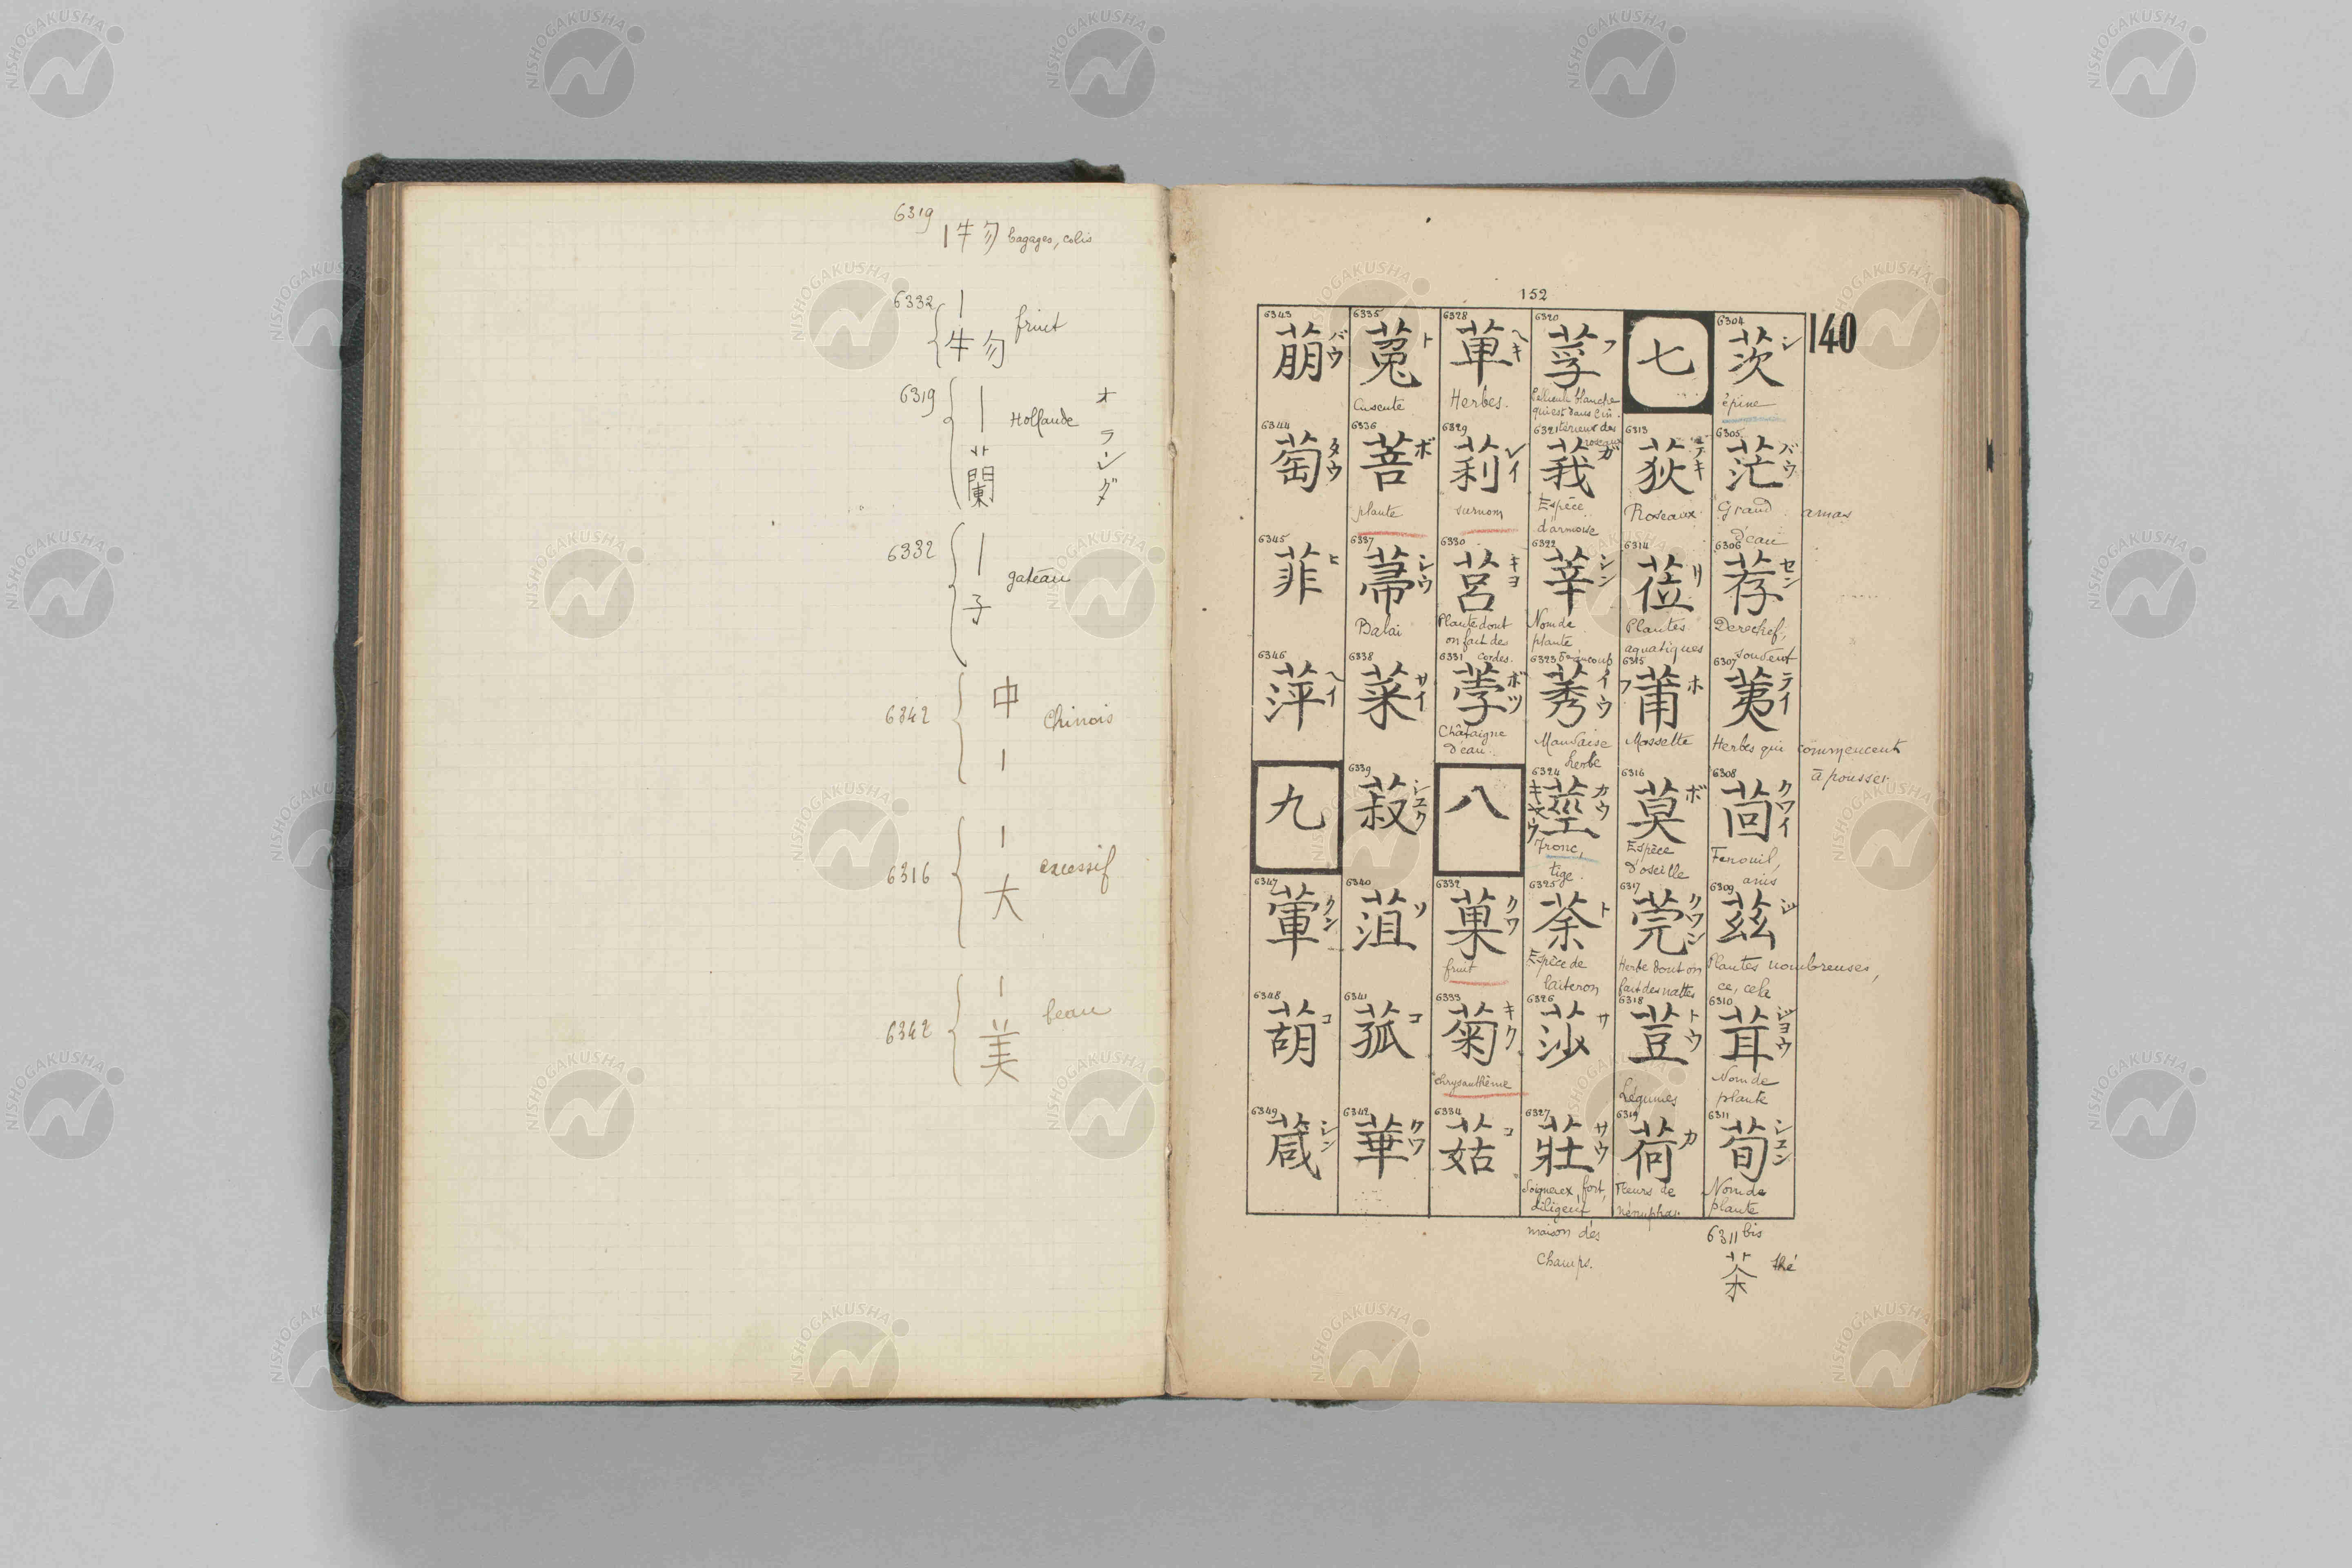 6319
|牛勿 bagages, colis
6332
|
牛勿 fruit
6319
|
蘭
Hollande
オランダ
6332
|
子
gateau
6342
中
|
Chinois
6316
|
大
excessif
6342
|
美
beau
152
140
6304 茨 シ
épine
6305 茫 バウ
Grand amas
d'eau
6306 荐 セン
Derechef,
souvent
6307 荑 テイ
Herbes qui commencent
à pousser
6308 茴 クワイ
Fenouil,
anis
6309 茲 シ
Plantes nombreuses,
ce, cela
6310 茸 ジヨウ
Nom de
plante
6311 荀 シユン
Nom de
plante
6311 bis
茶 thé
七
6313 荻 テキ
Roseaux
6314 莅 リ
Plantes
aquatiques
6315 莆 ホ フ
Mossette
6316 莫 ボ
Espèce
d'oseille
6317 莞 クワン
Herbe dont on
fait des nattes
6318 荳 トウ
Légumes
6319 荷 カ
Fleurs de
nénuphar
6320 莩 フ
Pellicule blanche
qui est dans l'in-
térieur des
roseaux
6321 莪 ガ
Espèce
d'armoise
6322 莘 シン
Nom de
plante
beaucoup
6323 莠 イウ
Mauvaise
herbe
6324 莖 カウ キヤウ
Tronc,
tige
6325 荼 ト
Espèce de
laiteron
6326 莎 サ
6327 莊 サウ
Soigneux, fort,
diligent
maison des
champs.
6328 萆 ヘキ
Herbes.
6329 莉 レイ
surnom
6330 莒 キヨ
Plante dont
on fait des
cordes.
6331 荸 ボツ
Châtaigne
d'eau
八
6332 菓 クワ
fruit
6333 菊 キク
chrysanthème
6334 菇 コ
6335 菟 ト
Cuscute
6336 菩 ボ
plante
6337 菷 シウ
Balai
6338 菜 サイ
6339 菽 シユク
6340 菹 ソ
6341 菰 コ
6342 華 クワ
6343 萠 バウ
6344 萄 タウ
6345 菲 ヒ
6346 萍 ヘイ
九
6347 葷 クン
6348 葫 コ
6349 葴 シン
NISHOGAKUSHA